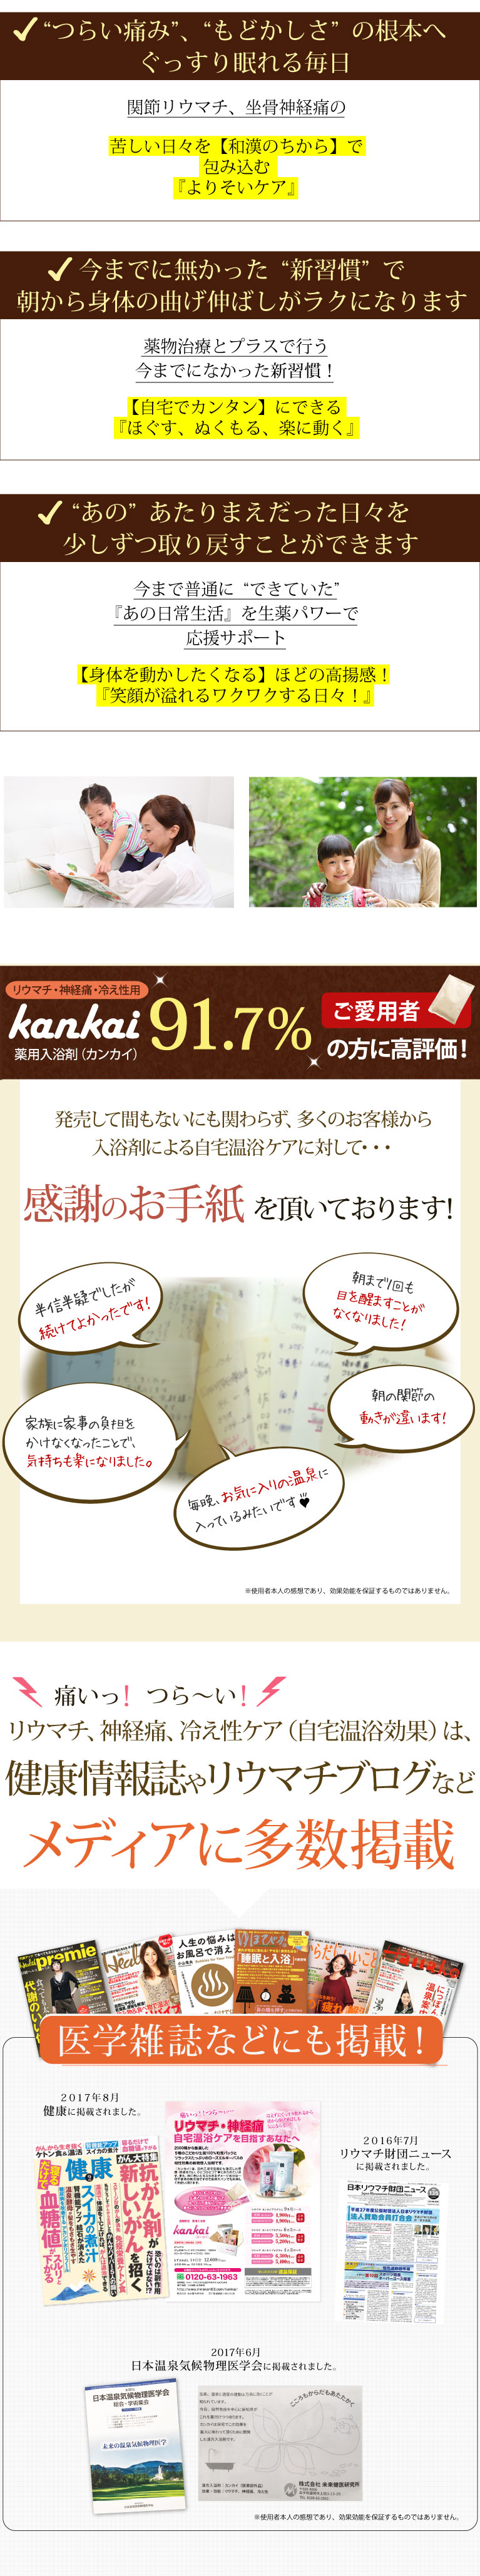 “つらい痛み”、“もどかしさ” の根本へ
ぐっすり眠れる毎日
関節リウマチ、坐骨神経痛の
苦しい日々を【和漢のちから】で
包み込む
『よりそいケア』
今までに無かった “新習慣” で
朝から身体の曲げ伸ばしがラクになります
薬物治療とプラスで行う
今までになかった新習慣！
【自宅でカンタン】にできる
『ほぐす、ぬくもる、楽に動く』
“あの” あたりまえだった日々を
少しずつ取り戻すことができます
今まで普通に “できていた”
『あの日常生活』を生薬パワーで
応援サポート
【身体を動かしたくなる】ほどの高揚感！
『笑顔が溢れるワクワクする日々！』
リウマチ・神経痛・冷え性用
kankai
薬用入浴剤（カンカイ）
91.7%
ご愛用者
の方に高評価！
発売して間もないにも関わらず、多くのお客様から
入浴剤による自宅温浴ケアに対して・・・
感謝のお手紙 を頂いております！
半信半疑でしたが
続けてよかったです！
朝まで1回も
目を醒ますことが
なくなりました！
家族に家事の負担を
かけなくなったことで、
気持ちも楽になりました。
朝の関節の
動きが違います！
毎晩、お気に入りの温泉に
入っているみたいです♥
※使用者本人の感想であり、効果効能を保証するものではありません。
痛いっ！ つら～い！
リウマチ、神経痛、冷え性ケア（自宅温浴効果）は、
健康情報誌やリウマチブログなど
メディアに多数掲載
premie
人生の悩みは
お風呂で消え
ゆほびか
「睡眠と入浴」
医学雑誌などにも掲載！
2017年8月
健康に掲載されました。
健康
スイカの煮汁
血糖値が下がる
抗がん剤
新しいがんを招く
リウマチ・神経痛
自宅温浴ケアを目指すあなたへ
kankai
0120-63-1963
2016年7月
リウマチ財団ニュース
に掲載されました。
日本リウマチ財団ニュース
2017年6月
日本温泉気候物理医学会に掲載されました。
日本温泉気候物理医学会
総会・学術集会
未来の温泉気候物理医学
こころもからだもあたたかく
株式会社 未来健医研究所
※使用者本人の感想であり、効果効能を保証するものではありません。